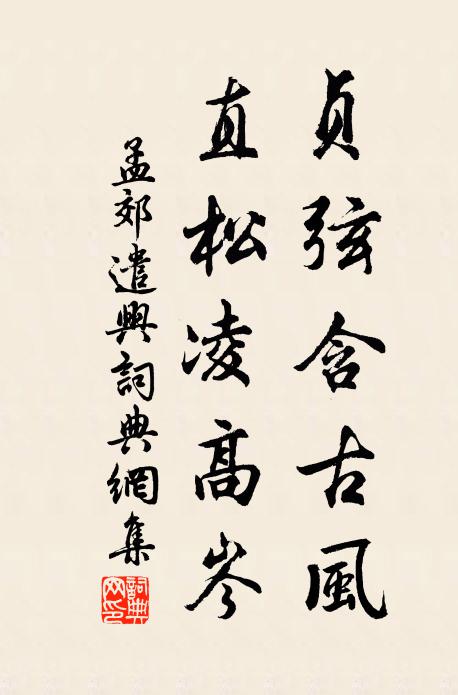 貞弦含古風
直松凌高岑
孟郊遣興詞典網集
詞典網印